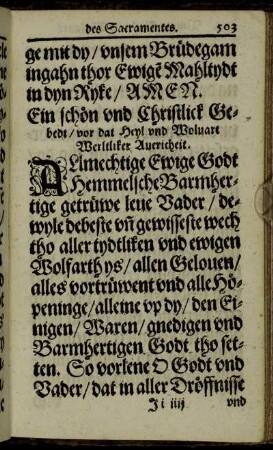 des Sacramentes. 503
ge mit dy / vnsem Brüdegam
ingahn thor Ewigē Mahltydt
in dyn Ryke / AMEN.
Ein schön vnd Christlick Ge-
bedt / vor dat Heyl vnd Woluart
Werltliker Auericheit.
ALmechtige Ewige Godt
Hemmelsche Barmher-
tige getrüwe leue Vader / de-
wyle debeste vñ gewisseste wech
tho aller tydtliken vnd ewigen
Wolfarth ys / allen Gelouen /
alles vortrüwent vnd alle Hö-
peninge / alleine vp dy / den Ei-
nigen / Waren / gnedigen vnd
Barmhertigen Godt tho set-
ten. So vorlene O Godt vnd
Vader / dat in aller Dröffnisse
Ji iiij vnd